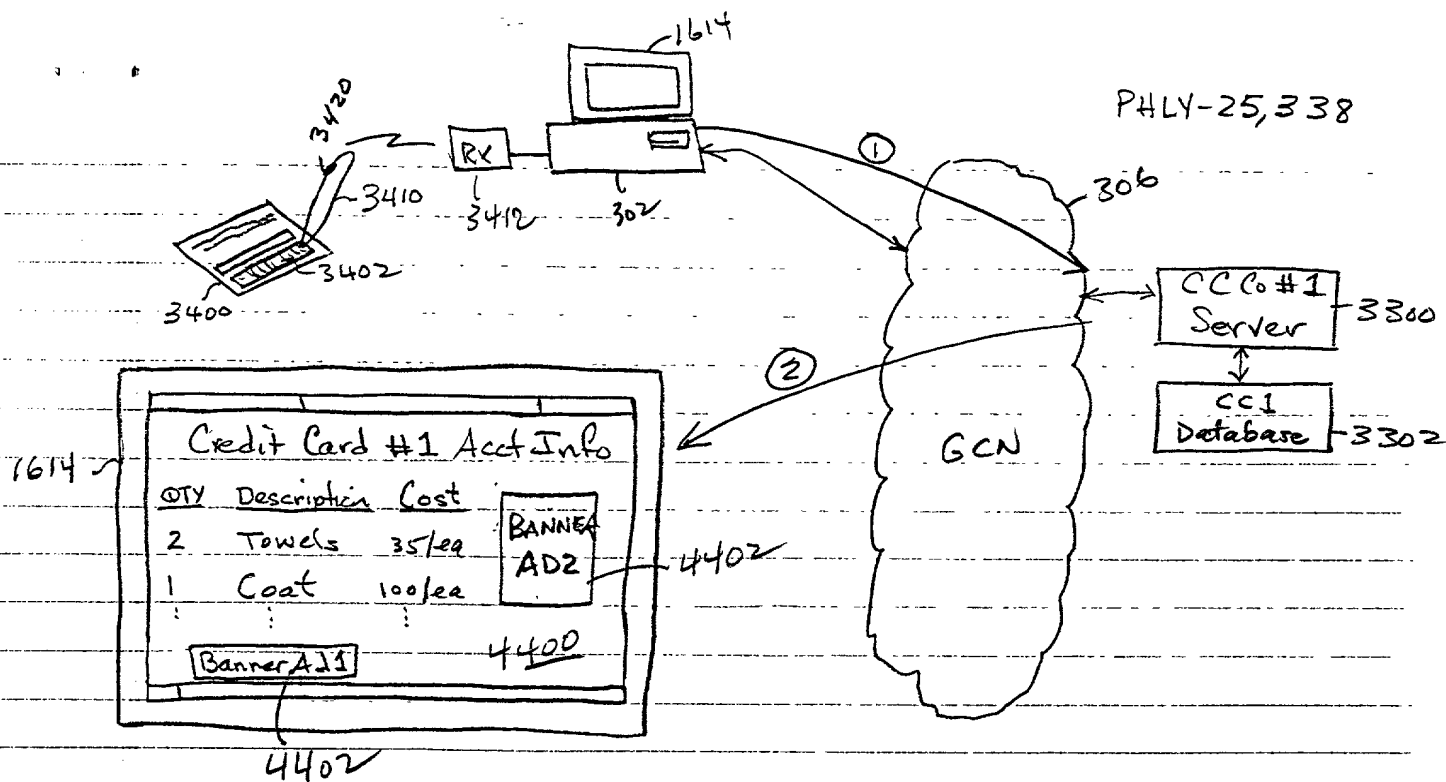 1614
PHLY-25,338
3420
RX
①
306
3410
3412
302
3402
3400
CC Co #1
Server
3300
②
CC1
Database
3302
GCN
1614
Credit Card #1 Acct Info
QTY Description Cost
2 Towels 35/ea
1 Coat 100/ea
⋮ ⋮ ⋮
BANNER
AD2
4402
Banner Ad1
4400
4402